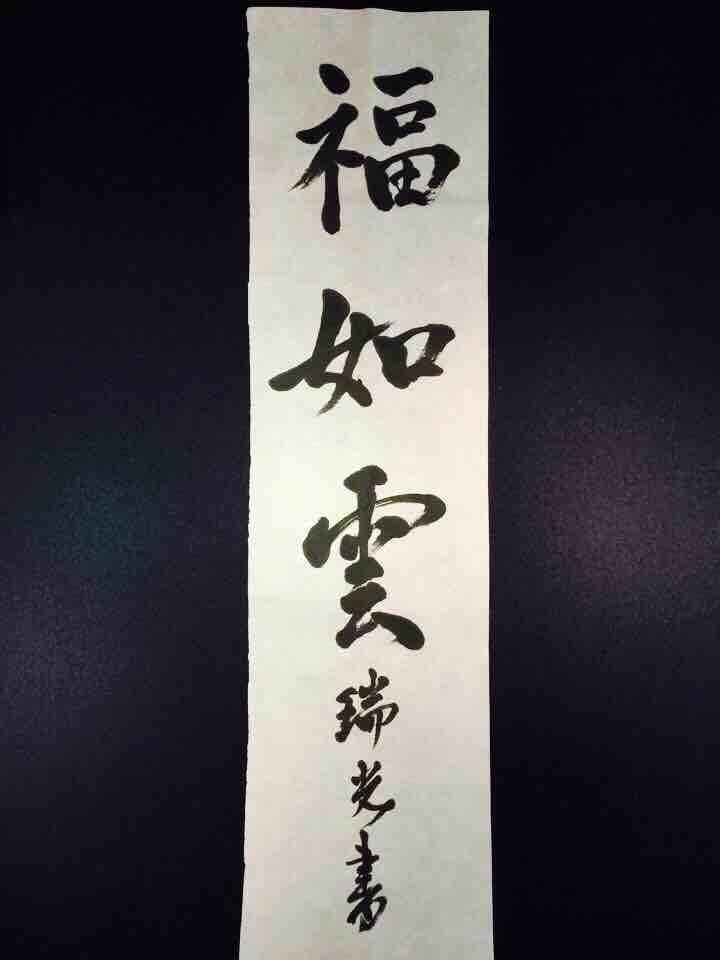 福如雲
瑞光書